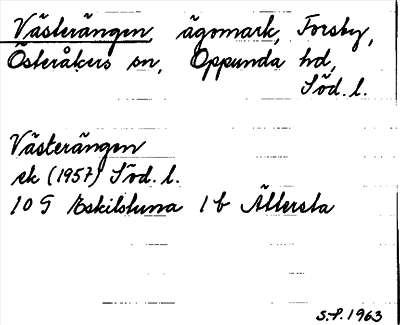 Västerängen, ägomark, Forsby,
Österåkers sn, Oppunda hd,
Söd. l.
Västerängen
ek (1957) Söd. l.
10 G Eskilstuna 1 b Ättersta
S.P. 1963